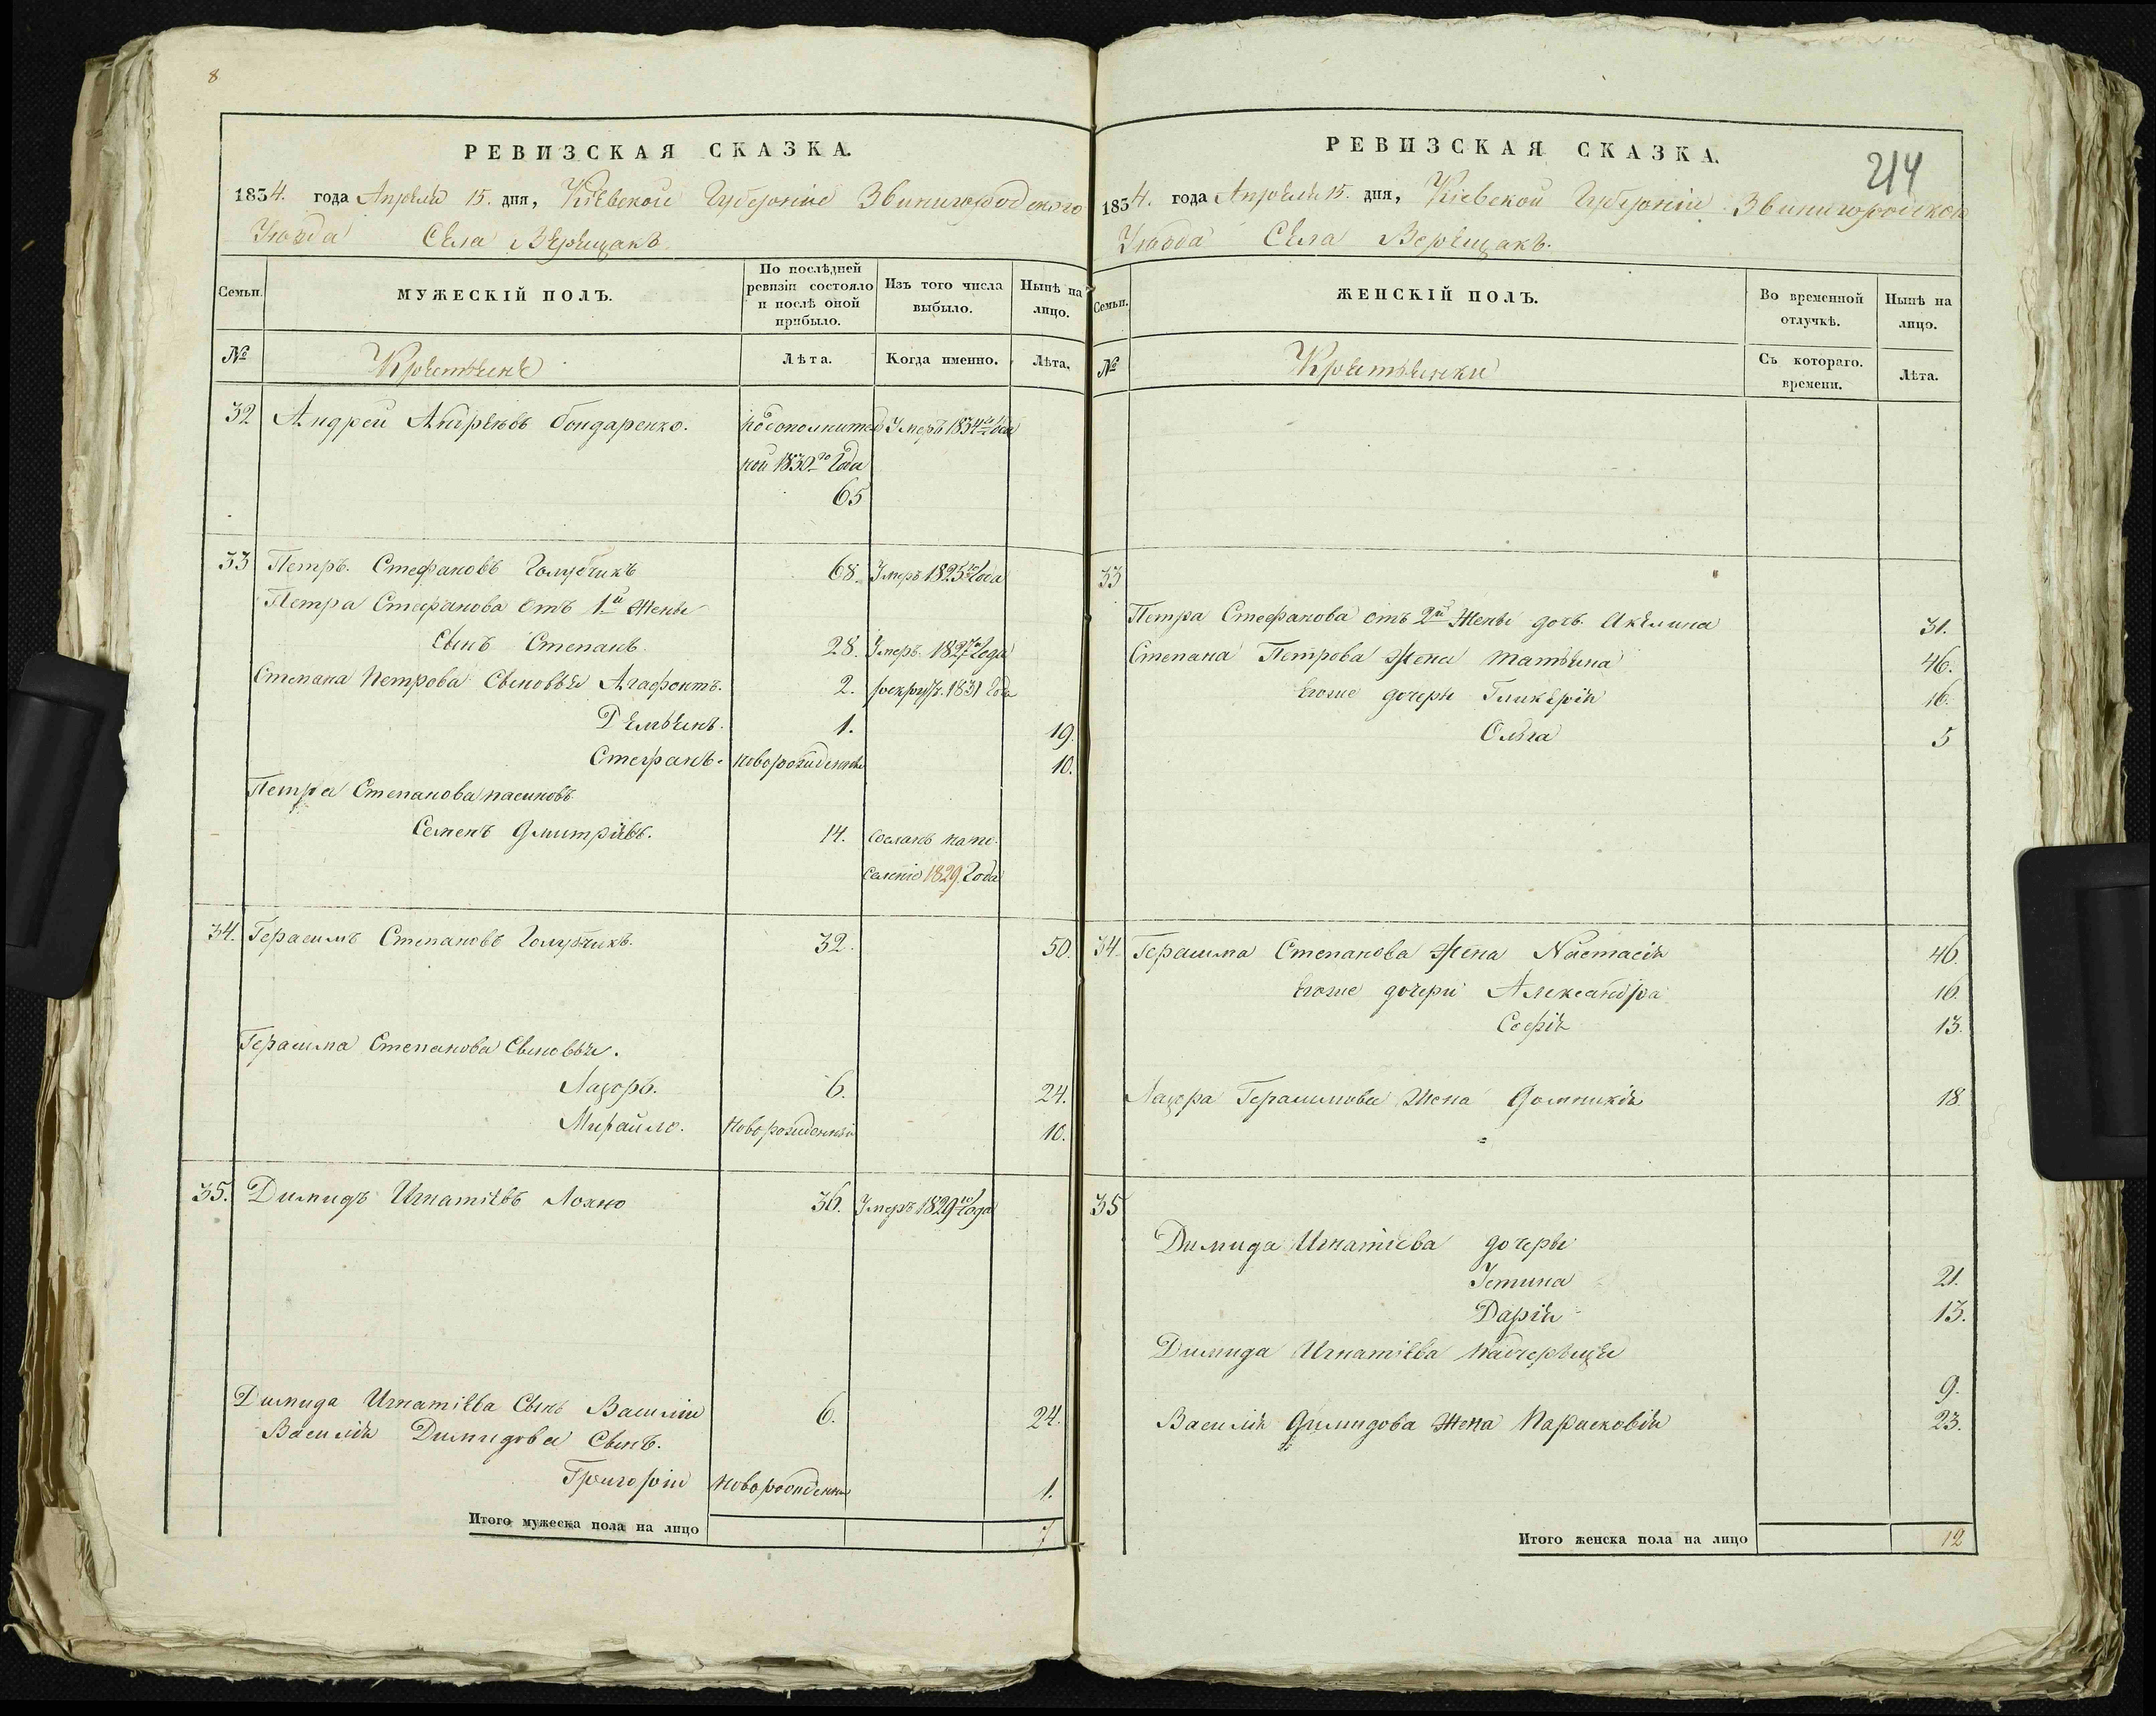 8
РЕВИЗСКАЯ СКАЗКА.
1834. года Апреля 15. дня, Кіевской Губерніи Звинигородского
Уѣзда Села Верещакъ
Семьи.
МУЖЕСКІЙ ПОЛЪ.
По послѣдней ревизіи состояло и послѣ оной прибыло.
Изъ того числа выбыло.
Нынѣ на лицо.
№ Крестьяне Лѣта. Когда именно. Лѣта.
32 Андрей Андреевъ бондаренко. Умеръ 1834 года
1830го Года
65
33 Петръ. Стефановъ Голубчикъ 68. Умеръ 1825го Года
Петра Стефанова отъ 1й жены
Сынъ Степанъ. 28. Умеръ 1827го Года
Степана Петрова Сыновья Агафонтъ. 2. рекрут. 1831 Года
1. 19.
Стефанъ. новорожденный 10.
Петра Степанова пасинокъ
Семенъ Дмитріевъ. 14. Сосланъ на по-
селеніе 1829 Года
34. Герасимъ Степановъ Голубчикъ. 32. 50.
Герасима Степанова Сыновья.
Лазоръ. 6. 24.
Михайло. Новорожденный 10.
35. Димидъ Игнатіевъ Лохно 36. Умеръ 1829го Года
Димида Игнатіева Сынъ Василій 6. 24.
Василія Димидова Сынъ.
Григорій Новорожденный 1.
Итого мужеска пола на лицо 7
РЕВИЗСКАЯ СКАЗКА.
214
1834. года Апреля 15. дня, Кіевской Губерніи Звинигородского
Уѣзда Села Верещакъ.
Семьи.
ЖЕНСКІЙ ПОЛЪ.
Во временной отлучкѣ.
Нынѣ на лицо.
№ Крестьянки Съ котораго. времени. Лѣта.
33
Петра Стефанова отъ 2й жены дочь Акелина 31.
Степана Петрова жена татьяна 46.
Егоже дочери Гликерія 16.
Ольга 5
34. Герасима Степанова жена Настасія 46.
Егоже дочери Александра 16.
Софія 13.
Лазора Герасимова жена Домникія 18
35
Димида Игнатіева дочеры
Устина 21.
Дарія 13.
Димида Игнатіева падчерица
9.
Василія Димидова жена Парасковія 23.
Итого женска пола на лицо 12